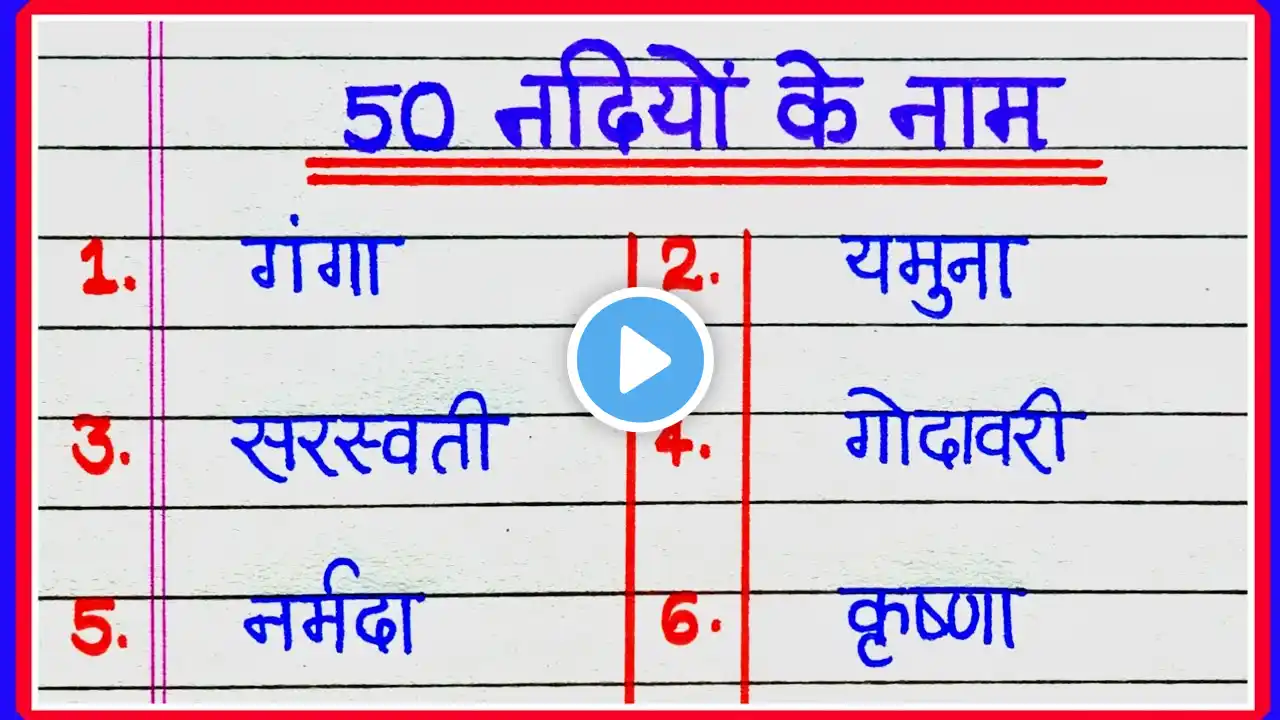 50 नदियों के नाम
1. गंगा 2. यमुना
3. सरस्वती 4. गोदावरी
5. नर्मदा 6. कृष्णा